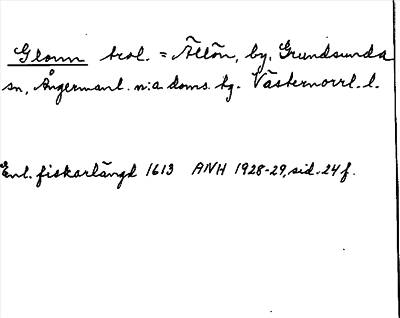 Glomn trol. = Ällön, by, Grundsunda
sn, Ångermanl. n:a doms. tg. Västernorrl. l.
Enl. fiskarlängd 1613 ANH 1928-29, sid. 24 f.